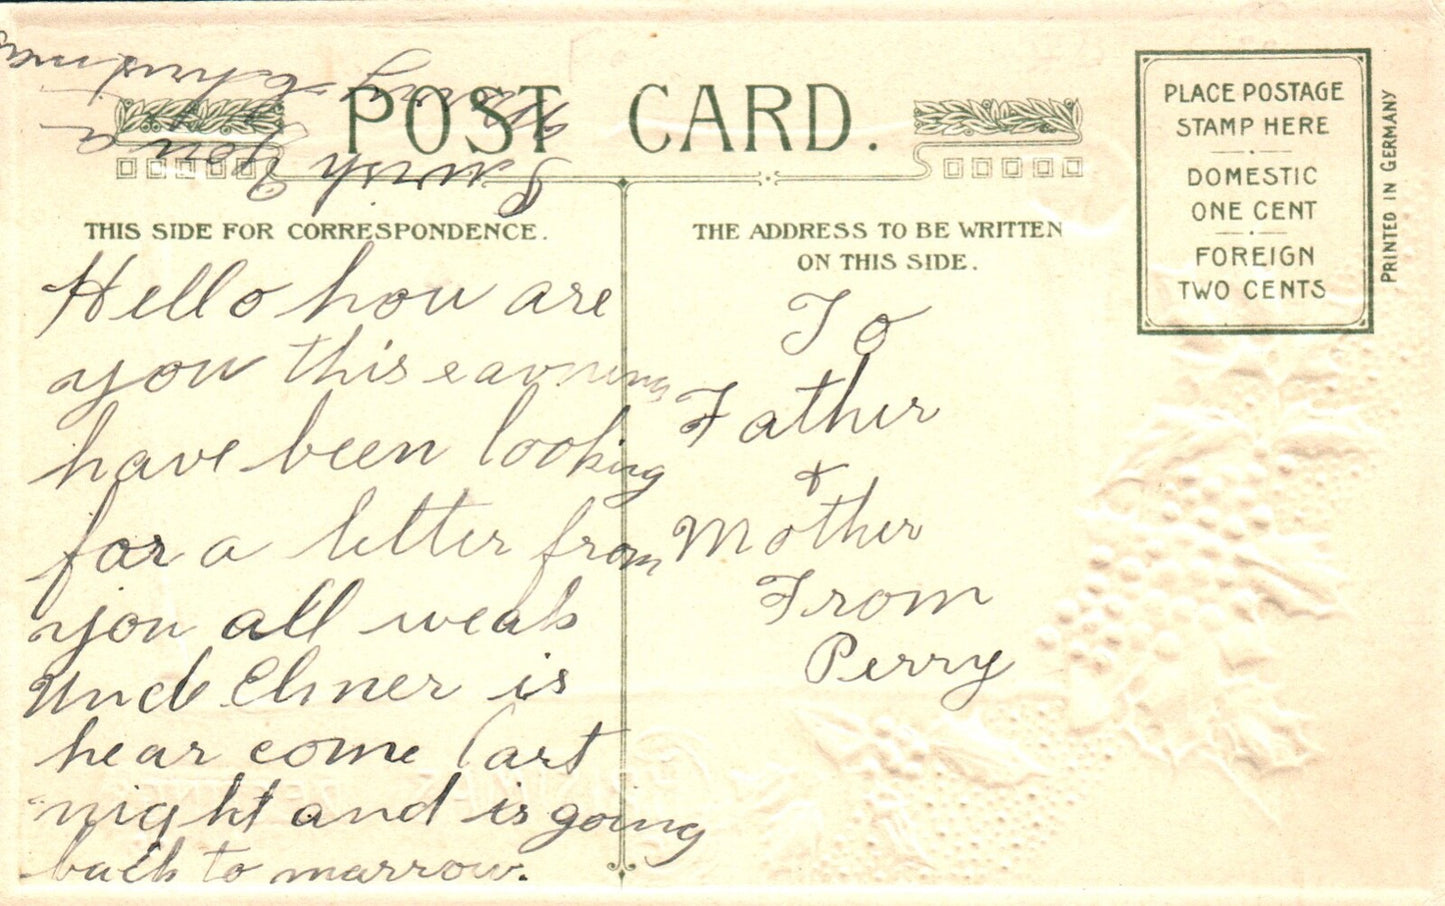 POST CARD.
THIS SIDE FOR CORRESPONDENCE.
Hello how are
you this eavning
have been looking
for a letter from
you all weak
Uncle Elmer is
hear come last
night and is going
back to marrow.
I wish You a
Merry Christmas
THE ADDRESS TO BE WRITTEN
ON THIS SIDE.
To
Father
&
Mother
From
Perry
PLACE POSTAGE
STAMP HERE
DOMESTIC
ONE CENT
FOREIGN
TWO CENTS
PRINTED IN GERMANY